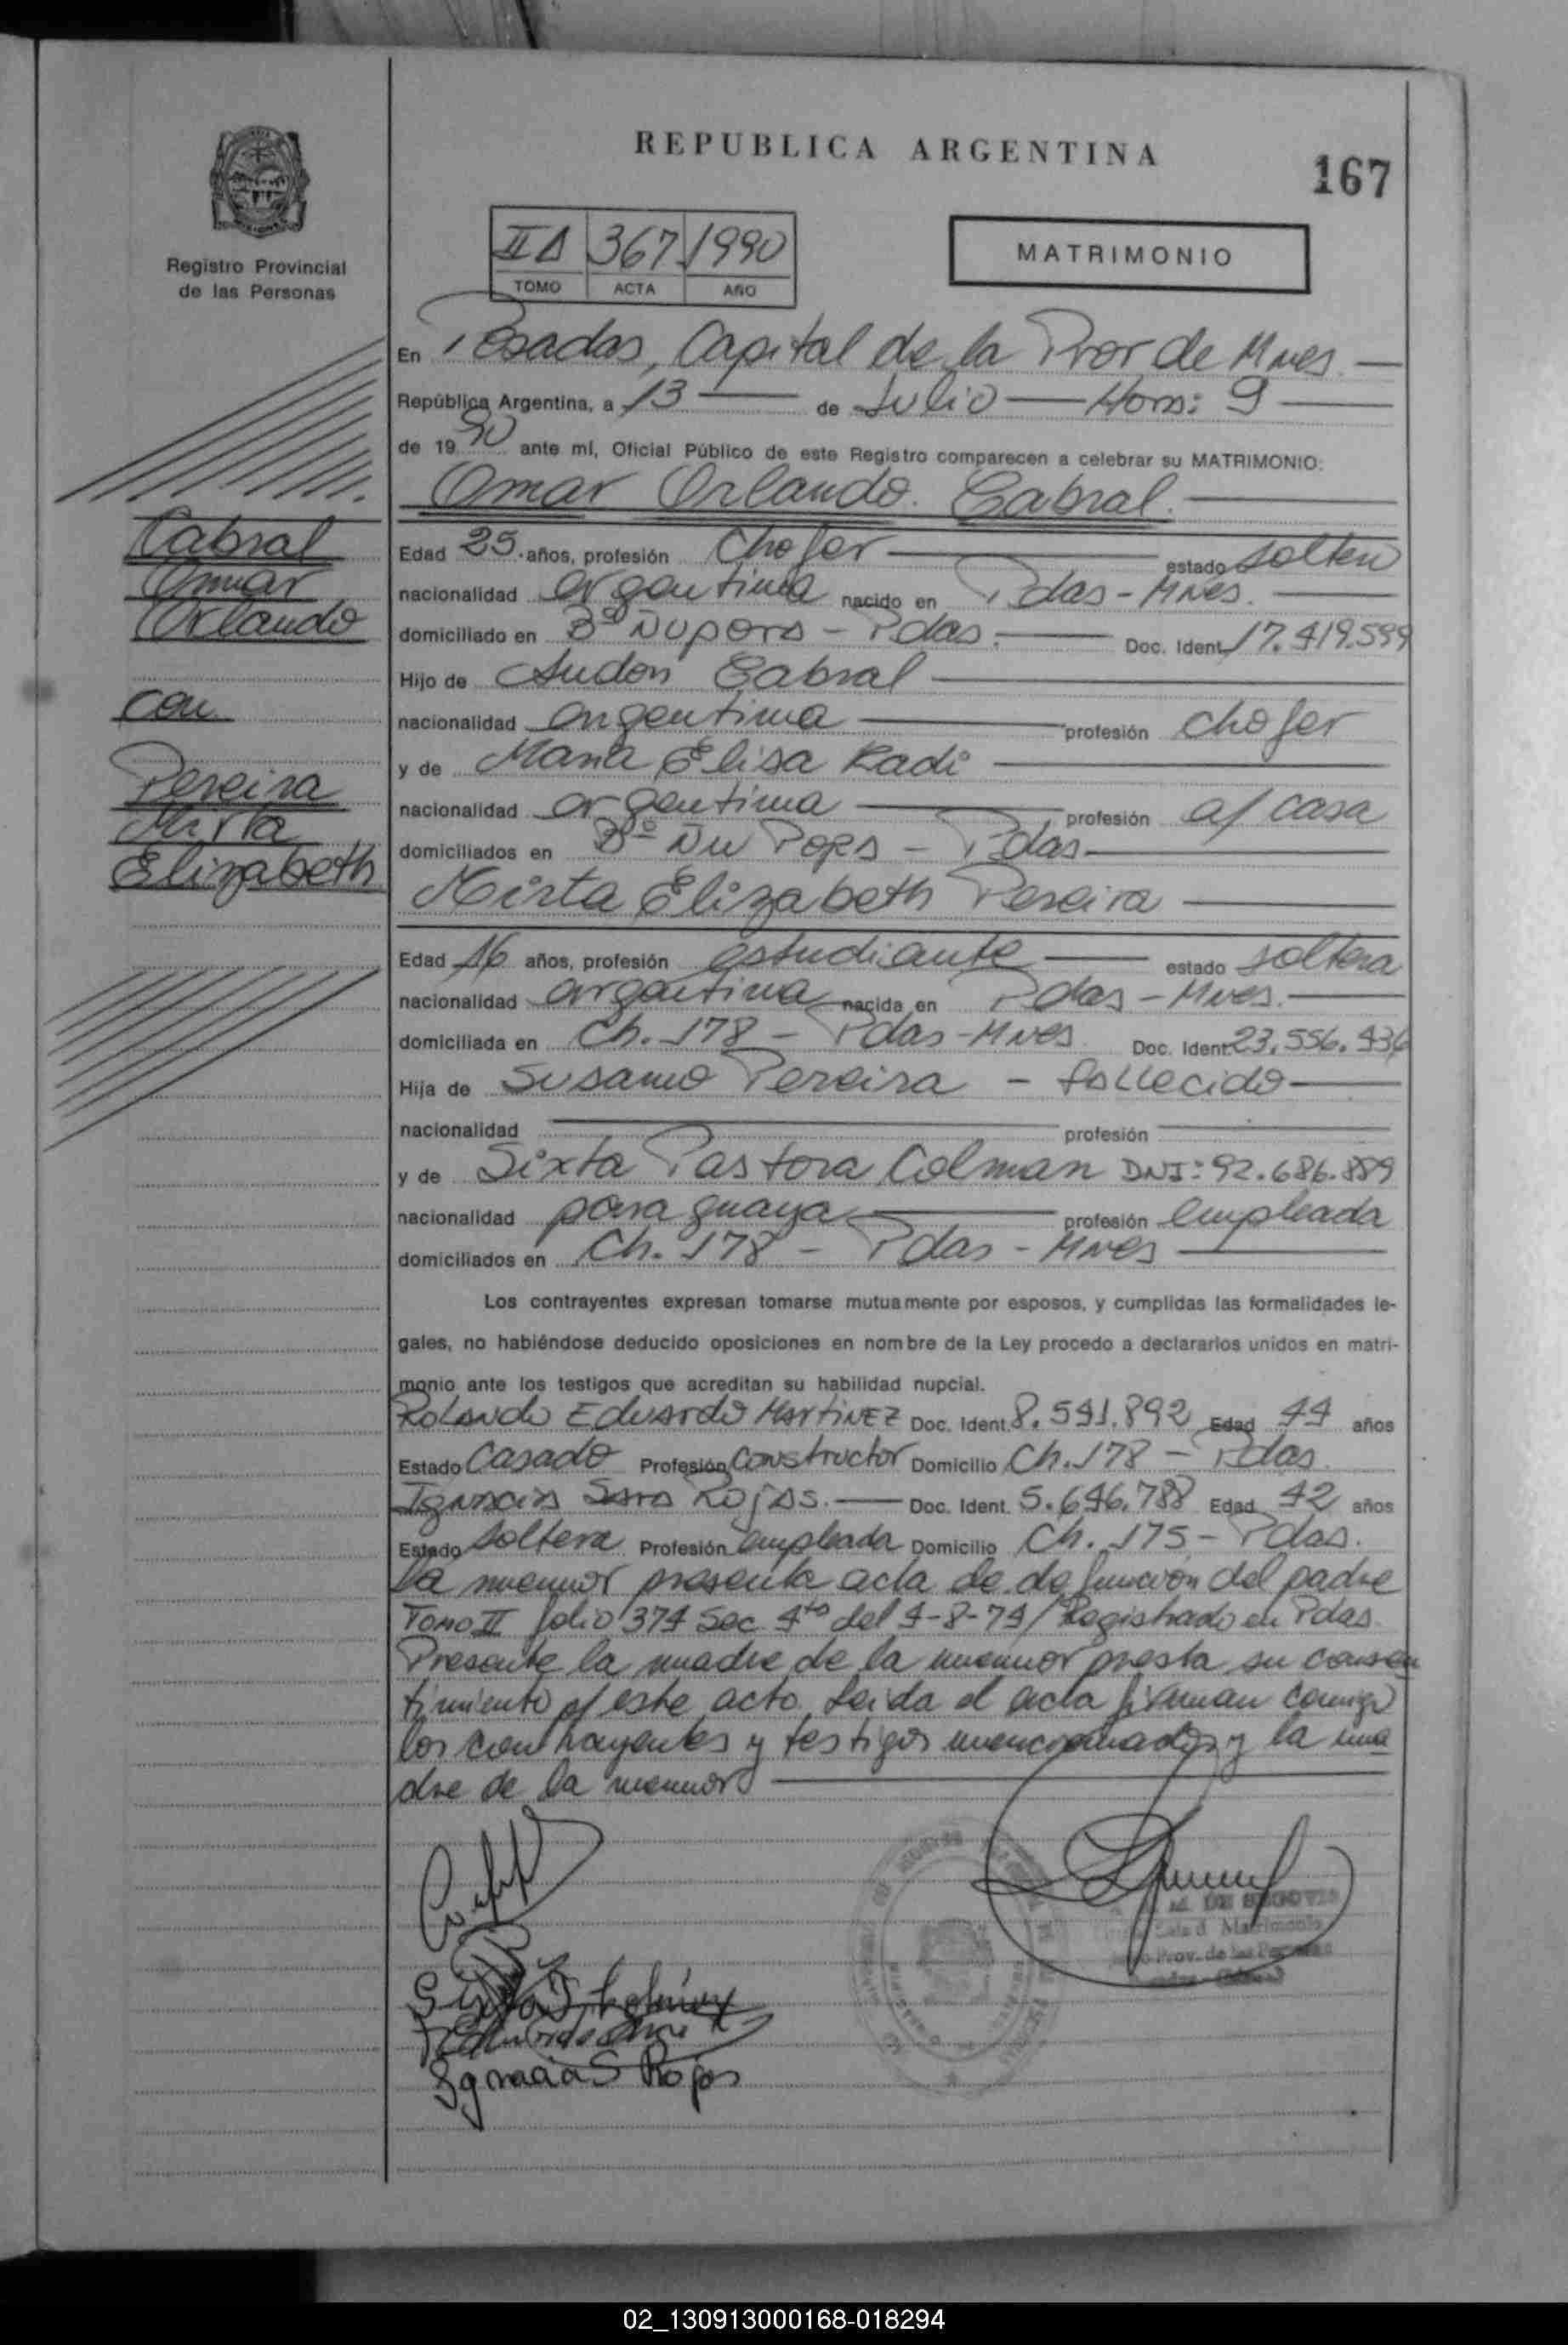 REPUBLICA ARGENTINA
167
Registro Provincial
de las Personas
II A 367 1990
TOMO ACTA AÑO
MATRIMONIO
En Posadas, Capital de la Prov de Mnes.
República Argentina, a 13 de Julio Hora: 9
de 1990 ante mí, Oficial Público de este Registro comparecen a celebrar su MATRIMONIO:
Omar Orlando Cabral.
Cabral
Omar
Orlando
con
Pereira
Mirta
Elizabeth
Edad 25 años, profesión Chofer estado soltero
nacionalidad argentina nacido en Pdas-Mnes.
domiciliado en Bº Ñu Pora - Pdas. Doc. Ident. 17.419.599
Hijo de Audon Cabral
nacionalidad argentina profesión chofer
y de Maria Elisa Radi
nacionalidad argentina profesión a/ casa
domiciliados en Bº Ñu Pora - Pdas
Mirta Elizabeth Pereira
Edad 16 años, profesión estudiante estado soltera
nacionalidad argentina nacida en Pdas-Mnes.
domiciliada en Ch. 178 - Pdas-Mnes Doc. Ident. 23.556.436
Hija de Susano Pereira - fallecido
nacionalidad profesión
y de Sixta Pastora Colman DNI: 92.686.889
nacionalidad paraguaya profesión empleada
domiciliados en Ch. 178 - Pdas - Mnes
Los contrayentes expresan tomarse mutuamente por esposos, y cumplidas las formalidades le-
gales, no habiéndose deducido oposiciones en nombre de la Ley procedo a declararlos unidos en matri-
monio ante los testigos que acreditan su habilidad nupcial.
Rolando Eduardo Martinez Doc. Ident. 8.541.892 Edad 44 años
Estado Casado Profesión Constructor Domicilio Ch. 178 - Pdas.
Ignacia Sara Rojas. Doc. Ident. 5.646.788 Edad 42 años
Estado soltera Profesión empleada Domicilio Ch. 175 - Pdas.
La menor presenta acta de defuncion del padre
Tomo II folio 374 Sec 4ta del 4-8-74/Registrado en Pdas.
Presente la madre de la menor presta su consen
timiento p/ este acto. Leida el acta firman conmigo
los contrayentes y testigos mencionados y la ma
dre de la menor
Ignacia S Rojas
02_130913000168-018294